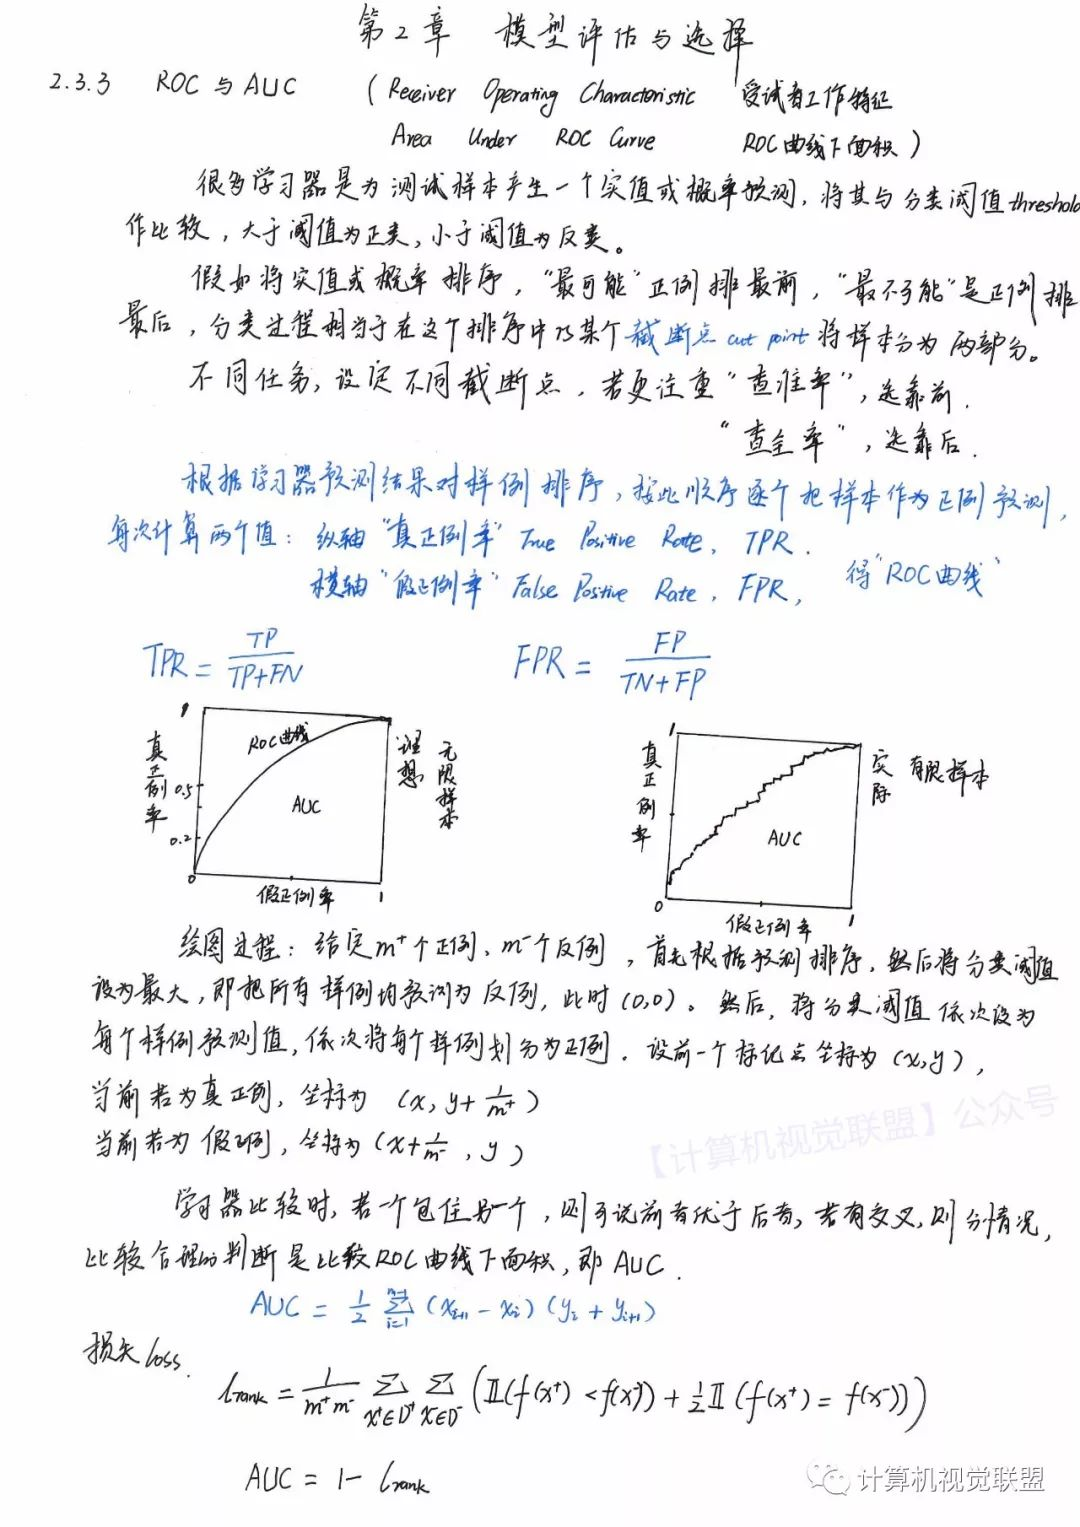 第2章 模型评估与选择
2.3.3 ROC与AUC (Receiver Operating Characteristic 受试者工作特征
Area Under ROC Curve ROC曲线下面积)
很多学习器是为测试样本产生一个实值或概率预测,将其与分类阈值threshold
作比较,大于阈值为正类,小于阈值为反类。
假如将实值或概率排序,“最可能”正例排最前,“最不可能”是正例排
最后,分类过程相当于在这个排序中以某个截断点cut point将样本分为两部分。
不同任务,设定不同截断点,若更注重“查准率”,选靠前.
“查全率”,选靠后.
根据学习器预测结果对样例排序,按此顺序逐个把样本作为正例预测,
每次计算两个值: 纵轴“真正例率”True Positive Rate, TPR.
横轴“假正例率”False Positive Rate, FPR, 得“ROC曲线”
TPR = TP/(TP+FN) FPR = FP/(TN+FP)
1 ROC曲线 AUC 真正例率 0.5 0.2 0 假正例率 1 理想 无限样本
1 真正例率 AUC 0 假正例率 1 实际 有限样本
绘图过程: 给定m⁺个正例、m⁻个反例,首先根据预测排序,然后将分类阈值
设为最大,即把所有样例均预测为反例,此时(0,0)。然后,将分类阈值依次设为
每个样例预测值,依次将每个样例划分为正例.设前一个标记点坐标为(x,y),
当前若为真正例,坐标为 (x, y+1/m⁺)
当前若为假正例,坐标为(x+1/m⁻, y)
【计算机视觉联盟】公众号
学习器比较时,若一个包住另一个,则可说前者优于后者,若有交叉,则分情况,
比较合理的判断是比较ROC曲线下面积,即AUC.
AUC = 1/2 ∑_{i=1}^{m-1} (x_{i+1} - x_i)(y_i + y_{i+1})
损失loss.
l_rank = 1/(m⁺m⁻) ∑_{x⁺∈D⁺} ∑_{x⁻∈D⁻} (𝕀(f(x⁺)<f(x⁻)) + 1/2 𝕀(f(x⁺) = f(x⁻)))
AUC = 1- l_rank
计算机视觉联盟